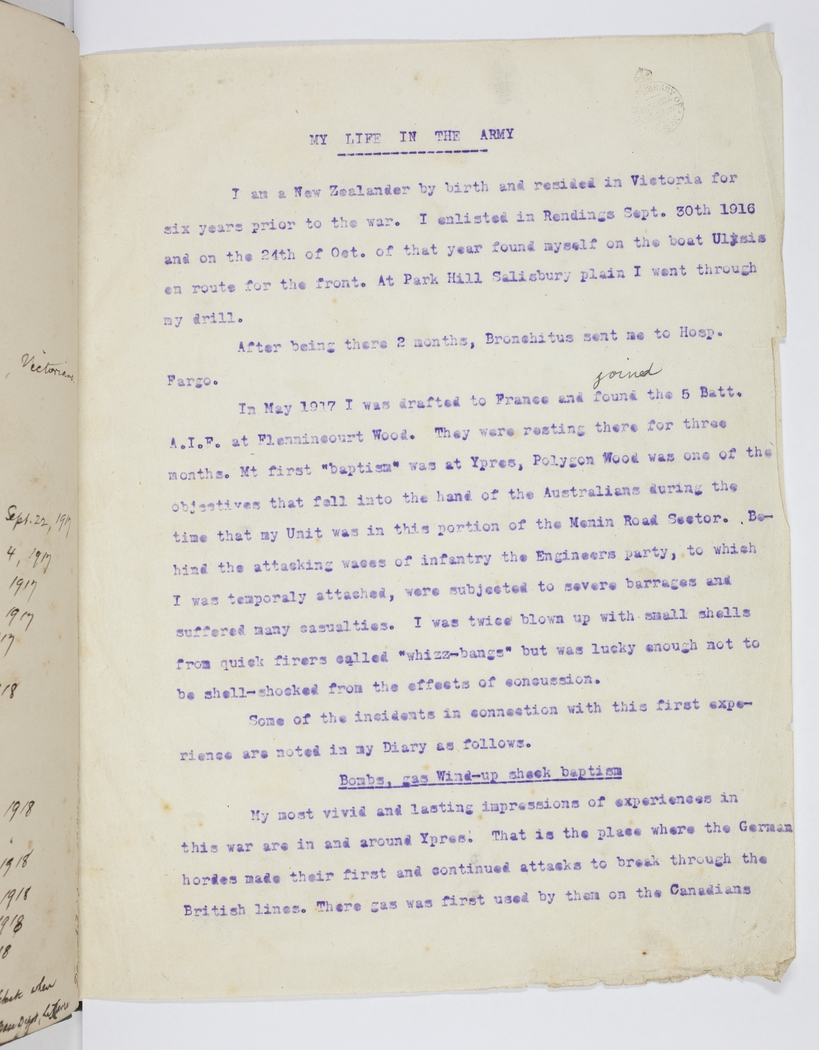 MY LIFE IN THE ARMY
I am a New Zealander by birth and resided in Victoria for
six years prior to the war. I enlisted in Rendings Sept. 30th 1916
and on the 24th of Oct. of that year found myself on the boat Ulysis
en route for the front. At Park Hill Salisbury plain I went through
my drill.
After being there 2 months, Bronchitus sent me to Hosp.
Fargo.
joined
In May 1917 I was drafted to France and found the 5 Batt.
A.I.F. at Flennincourt Wood. They were resting there for three
months. Mt first "baptism" was at Ypres, Polygon Wood was one of the
objectives that fell into the hand of the Australians during the
time that my Unit was in this portion of the Menin Road Sector. Be-
hind the attacking waces of infantry the Engineers party, to which
I was temporaly attached, were subjected to severe barrages and
suffered many casualties. I was twice blown up with small shells
from quick firers called "whizz-bangs" but was lucky enough not to
be shell-shocked from the effects of concussion.
Some of the incidents in connection with this first expe-
rience are noted in my Diary as follows.
Bombs, gas Wind-up shock baptism
My most vivid and lasting impressions of experiences in
this war are in and around Ypres. That is the place where the German
hordes made their first and continued attacks to break through the
British lines. There gas was first used by them on the Canadians
, Victorian
Sept. 22, 1917
4, 1917
1917
1917
17
18
1918
1918
1918
1918
18
when
Base Dept,